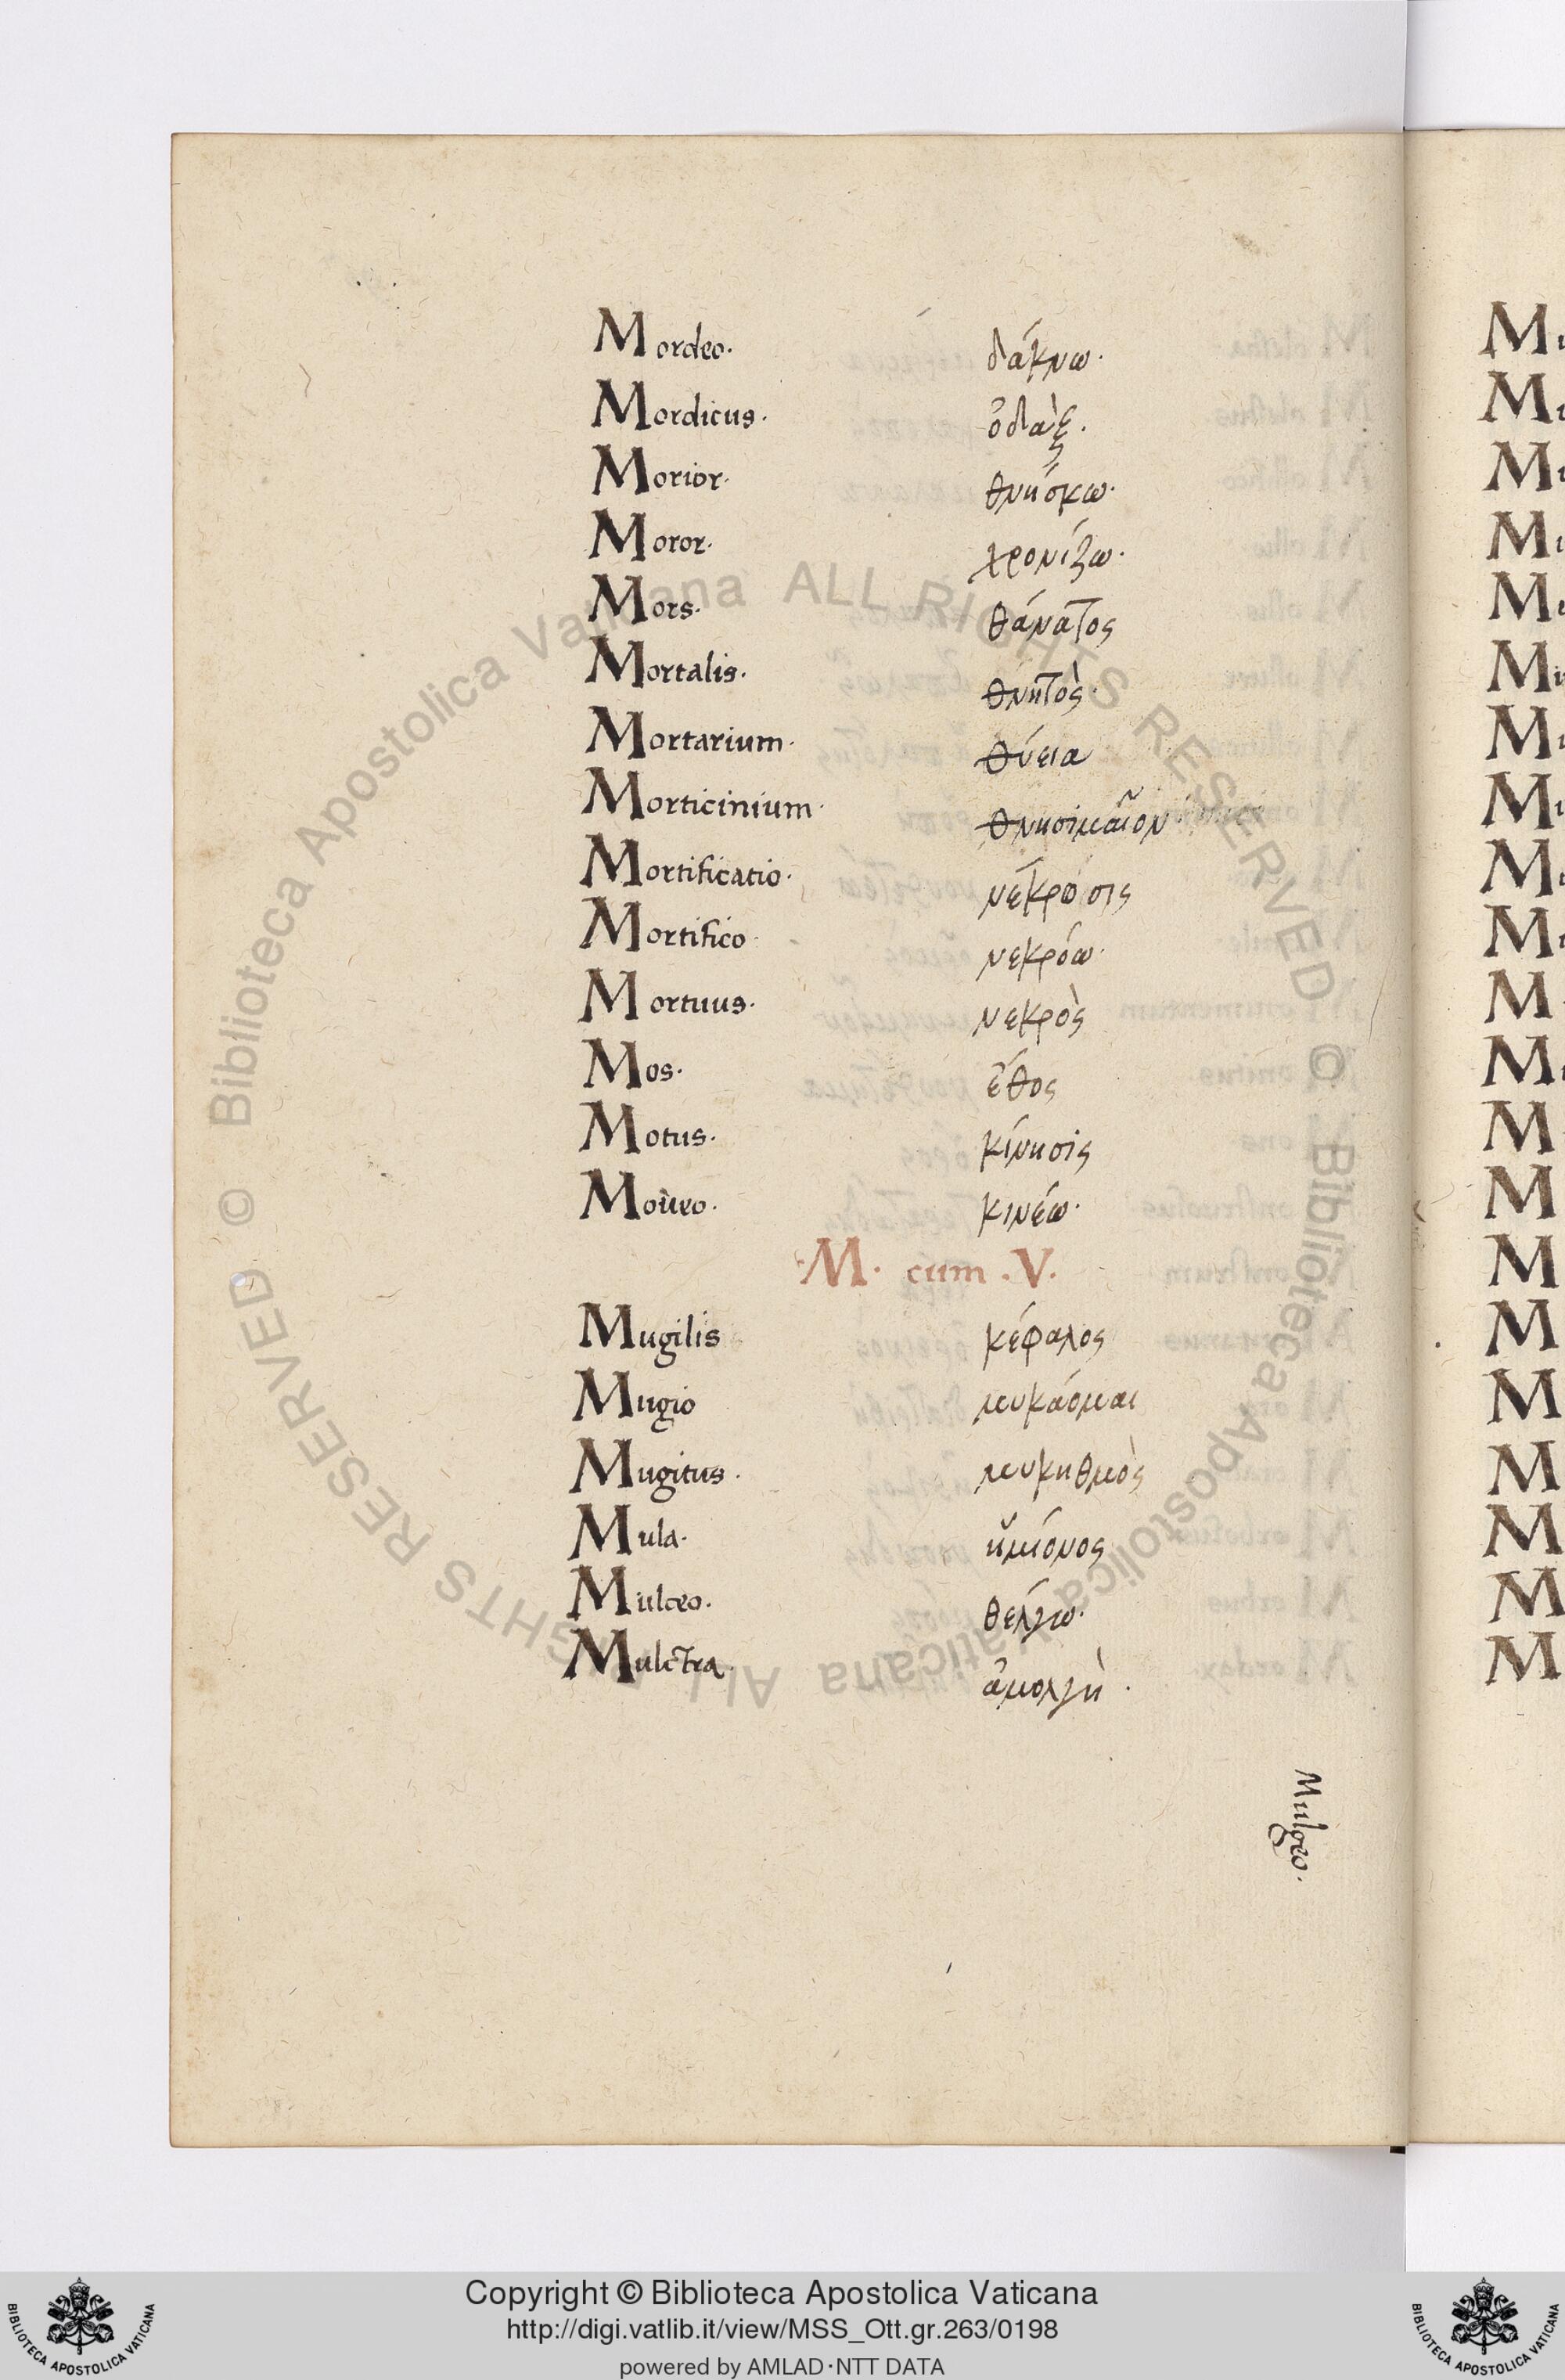 Mordeo. δάκνω.
Mordicus. ὀδὰξ.
Morior. θνήσκω.
Moror. χρονίζω.
Mors. θάνατος
Mortalis. θνητὸς.
Mortarium. θύεια
Morticinium. θνησιμαῖον
Mortificatio. νέκρωσις
Mortifico. νεκρόω.
Mortuus. νεκρὸς
Mos. ἔθος
Motus. κίνησις
Moueo. κινέω.
.M. cum .V.
Mugilis κέφαλος
Mugio μυκάομαι
Mugitus. μυκηθμὸς
Mula. ἡμίονος
Mulceo. θέλγω.
Mulctra. ἀμολγὴ.
Mulgeo.
© Biblioteca Apostolica Vaticana ALL RIGHTS RESERVED
© Biblioteca Apostolica Vaticana ALL RIGHTS RESERVED
Copyright © Biblioteca Apostolica Vaticana
http://digi.vatlib.it/view/MSS_Ott.gr.263/0198
powered by AMLAD·NTT DATA
BIBLIOTECA APOSTOLICA VATICANA
BIBLIOTECA APOSTOLICA VATICANA